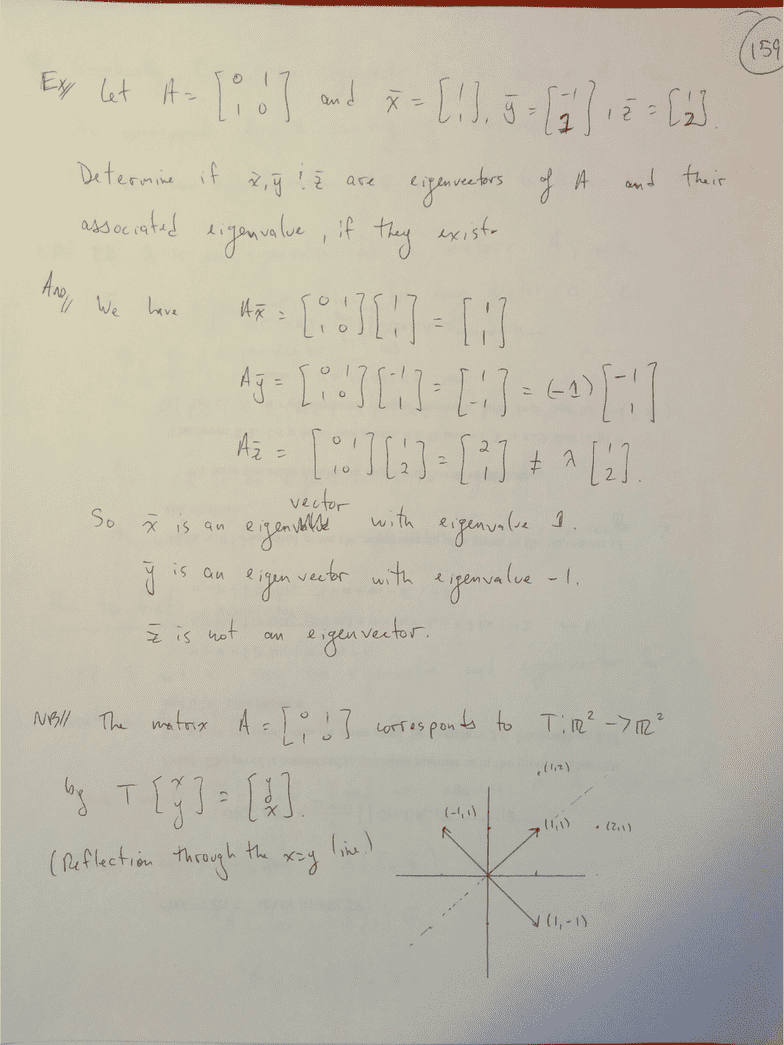 159
Ex// Let A = [0 1; 1 0] and x̄ = [1; 1], ȳ = [-1; 1], z̄ = [1; 2].
Determine if x̄, ȳ ! z̄ are eigenvectors of A and their
associated eigenvalue, if they exist.
Ans// We have Ax̄ = [0 1; 1 0][1; 1] = [1; 1]
Aȳ = [0 1; 1 0][-1; 1] = [1; -1] = (-1)[-1; 1]
Az̄ = [0 1; 1 0][1; 2] = [2; 1] ≠ λ[1; 2].
So x̄ is an eigenvector with eigenvalue 1.
ȳ is an eigenvector with eigenvalue -1.
z̄ is not an eigenvector.
NB// The matrix A = [0 1; 1 0] corresponds to T: ℝ² -> ℝ²
by T[x; y] = [y; x].
(Reflection through the x=y line.)
(1,2)
(-1,1)
(1,1)
(2,1)
(1,-1)